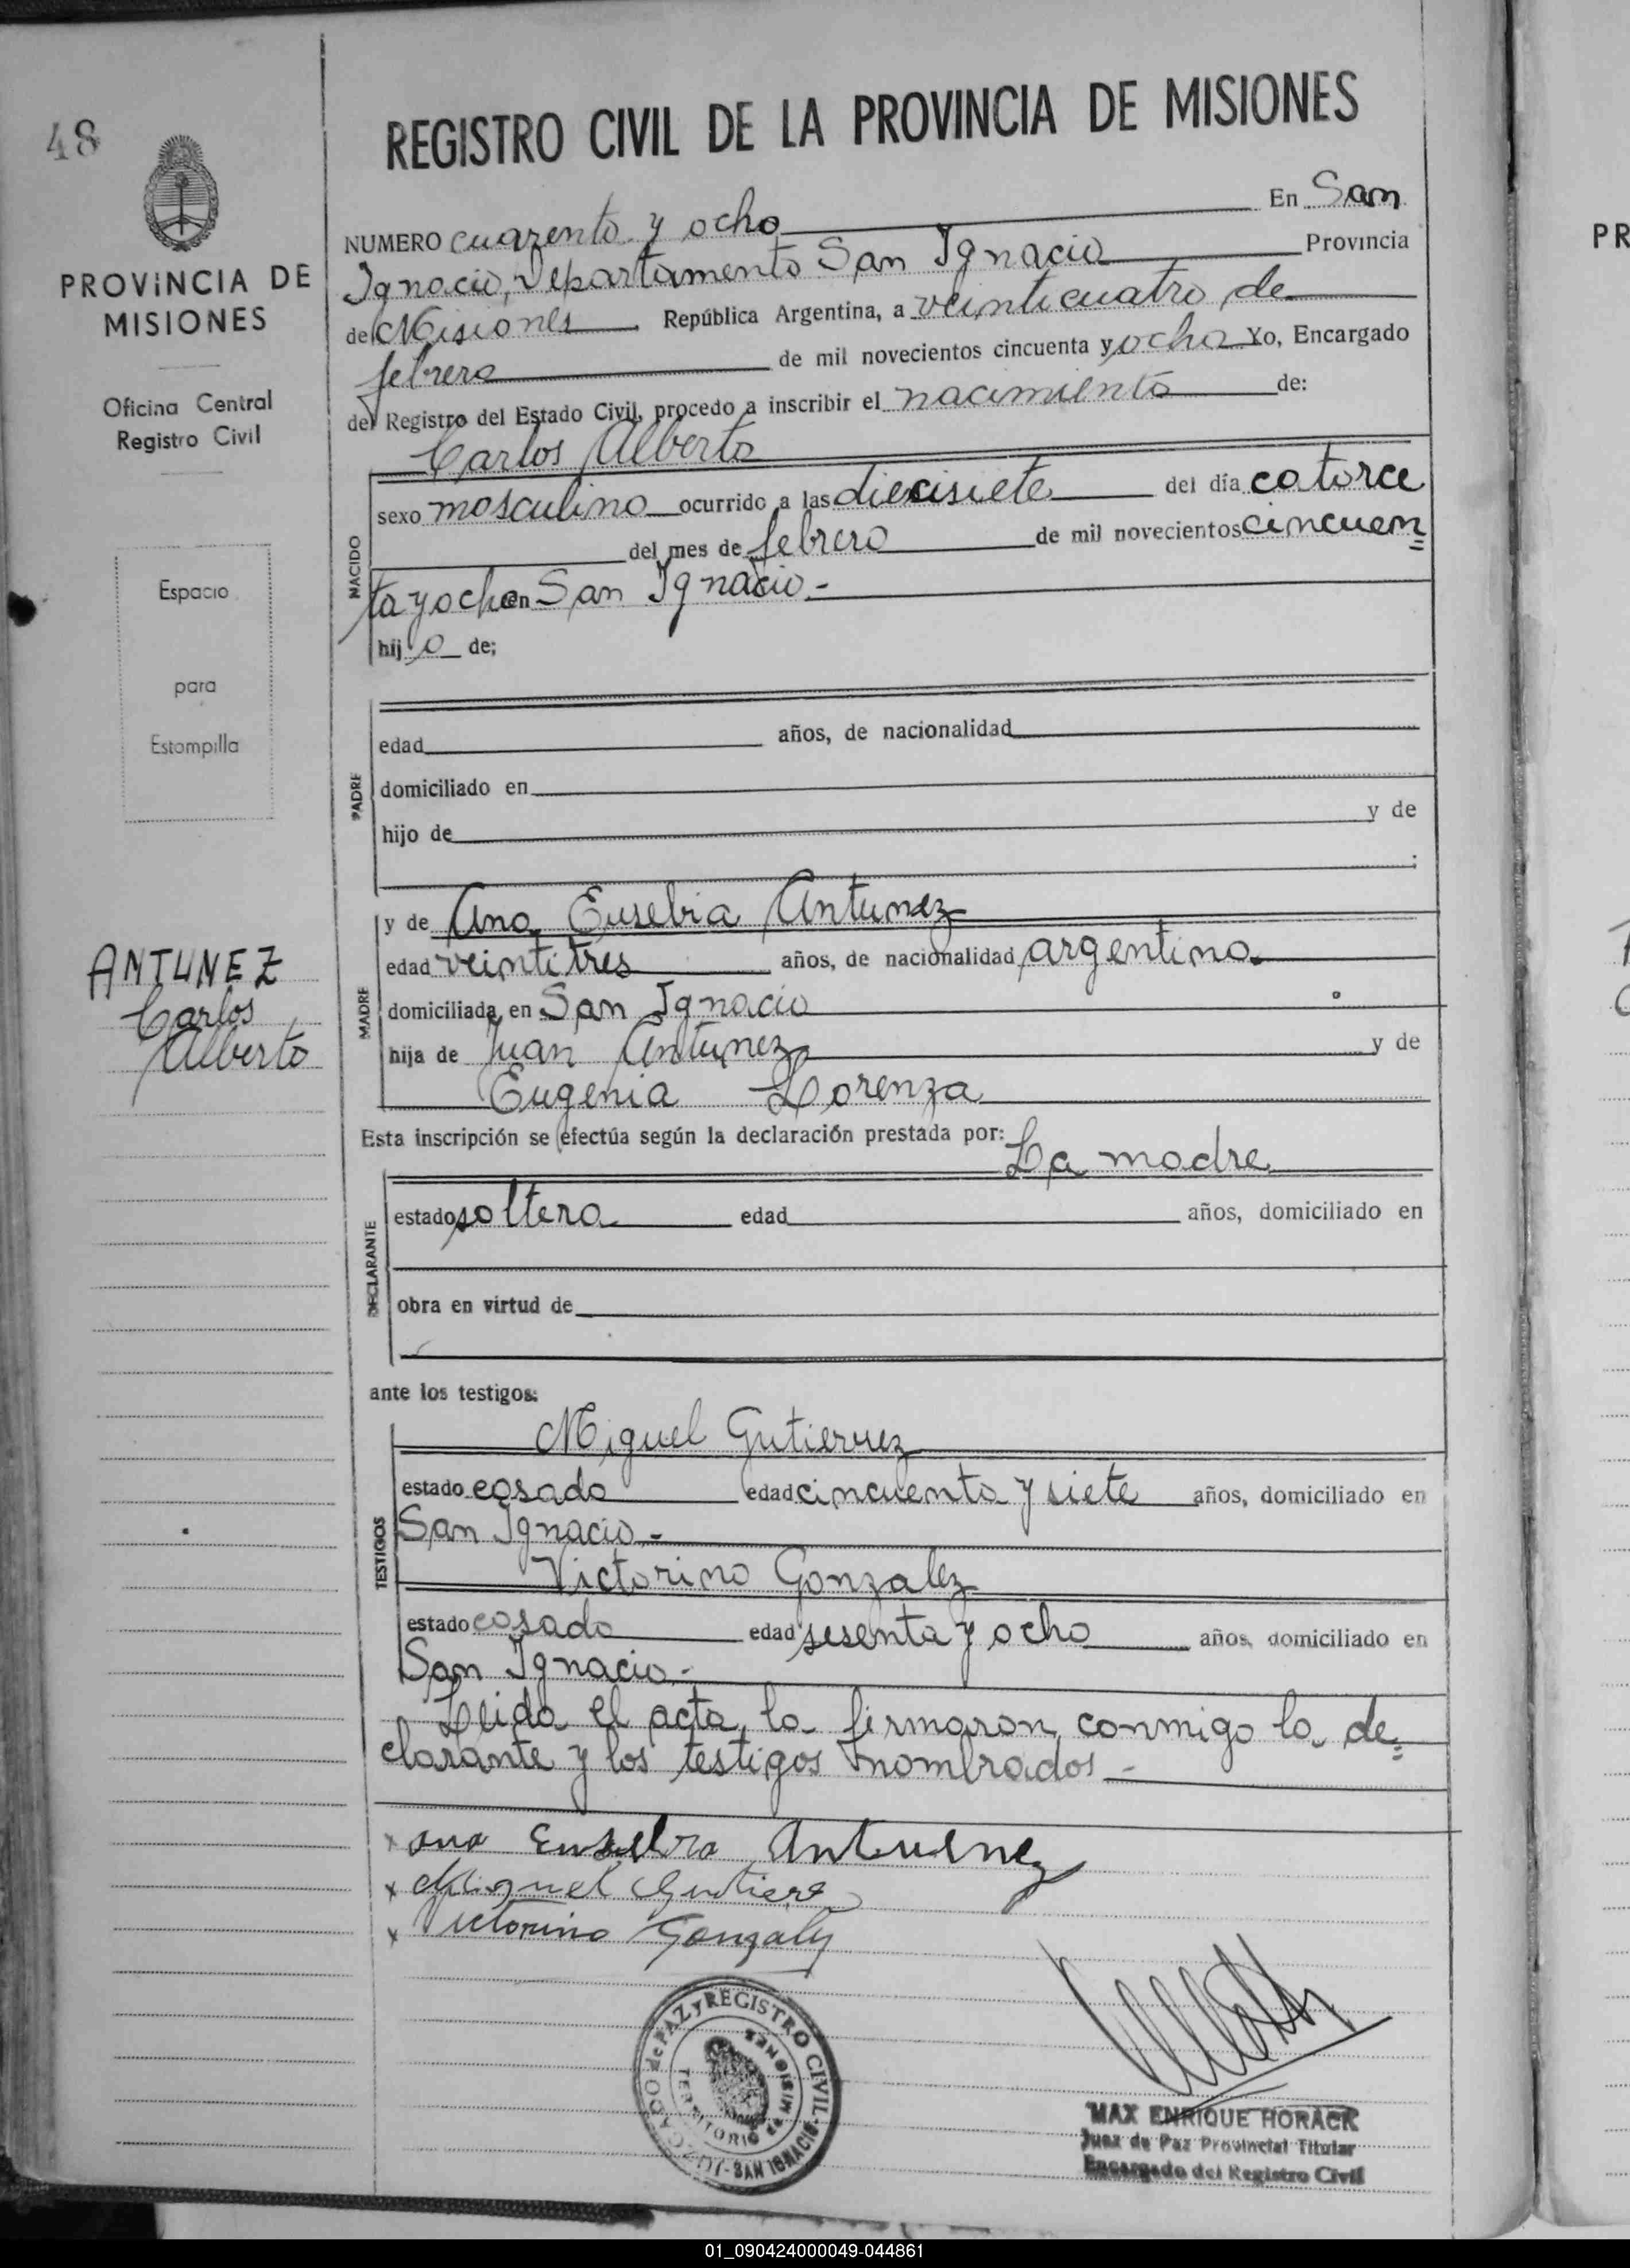 48
PROVINCIA DE
MISIONES
Oficina Central
Registro Civil
Espacio
para
Estampilla
ANTUNEZ
Carlos
Alberto
REGISTRO CIVIL DE LA PROVINCIA DE MISIONES
NUMERO cuarenta y ocho En San
Ignacio, Departamento San Ignacio Provincia
de Misiones República Argentina, a veinticuatro de
febrero de mil novecientos cincuenta y ocho Yo, Encargado
del Registro del Estado Civil, procedo a inscribir el nacimiento de:
Carlos Alberto
NACIDO
sexo masculino ocurrido a las diecisiete del día catorce
del mes de febrero de mil novecientos cincuen=
ta y ocho en San Ignacio.-
hij o de;
PADRE
edad años, de nacionalidad
domiciliado en
hijo de y de
;
MADRE
y de Ana Eusebia Antunez
edad veintitres años, de nacionalidad argentina.
domiciliada en San Ignacio
hija de Juan Antunez y de
Eugenia Lorenza
Esta inscripción se efectúa según la declaración prestada por:
La madre
DECLARANTE
estado soltera edad años, domiciliado en
obra en virtud de
ante los testigos:
TESTIGOS
Miguel Gutierrez
estado casado edad cincuenta y siete años, domiciliado en
San Ignacio.-
Victorino Gonzalez
estado casado edad sesenta y ocho años, domiciliado en
San Ignacio.-
Leida el acta, la firmaron conmigo la de=
clarante y los testigos nombrados.-
x Ana Eusebia Antunez
x Miguel Gutierrez
x Victorino Gonzalez
JUZGADO de PAZ y REGISTRO CIVIL - SAN IGNACIO
TERRITORIO de MISIONES
MAX ENRIQUE HORACK
Juez de Paz Provincial Titular
Encargado del Registro Civil
PR
01_090424000049-044861